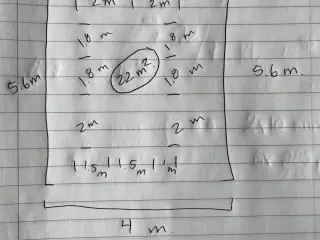 2m 2m
1.8 m 1.8 m
5.6m 1.8 m 22m² 1.8 m 5.6 m.
2m 2m
1.5m 1.5m 1m
4 m.